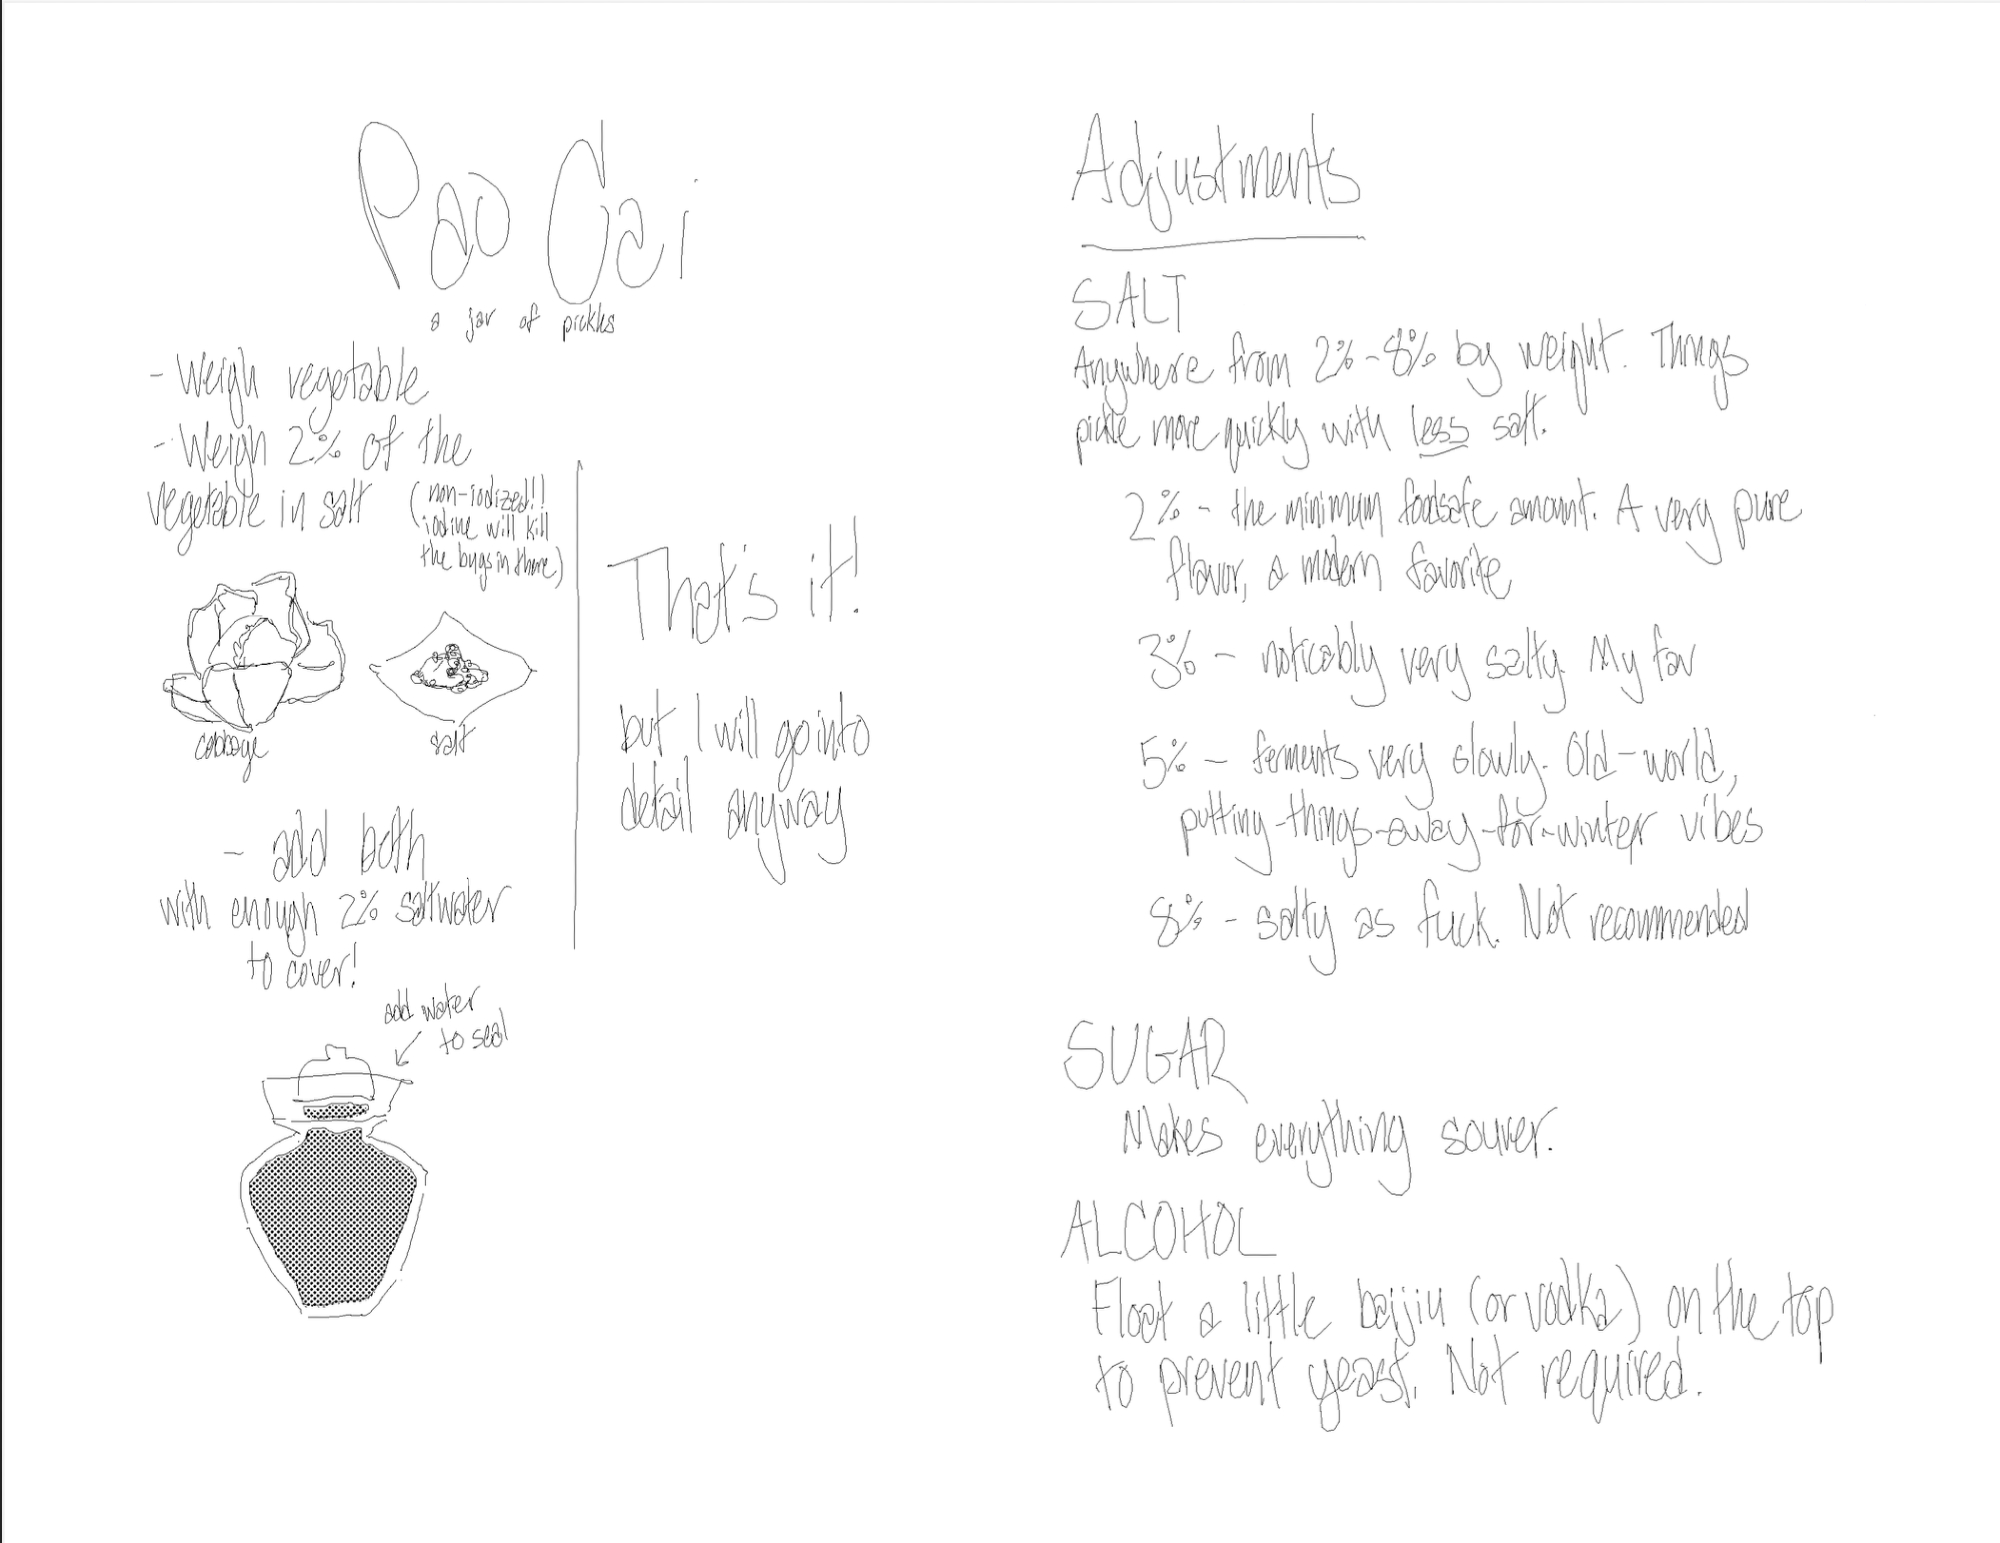 Pao Cai
a jar of pickles
- Weigh vegetable
- Weigh 2% of the
vegetable in salt
(non-iodized!!
iodine will kill
the bugs in there)
cabbage
salt
- add both
with enough 2% saltwater
to cover!
add water
to seal
That's it!
but I will go into
detail anyway
Adjustments
SALT
Anywhere from 2%-8% by weight. Things
pickle more quickly with less salt.
2% - the minimum foodsafe amount. A very pure
flavor, a modern favorite
3% - noticably very salty. My fav
5% - ferments very slowly. Old-world,
putting-things-away-for-winter vibes
8% - salty as fuck. Not recommended
SUGAR
Makes everything sourer.
ALCOHOL
Float a little baijiu (or vodka) on the top
to prevent yeast. Not required.